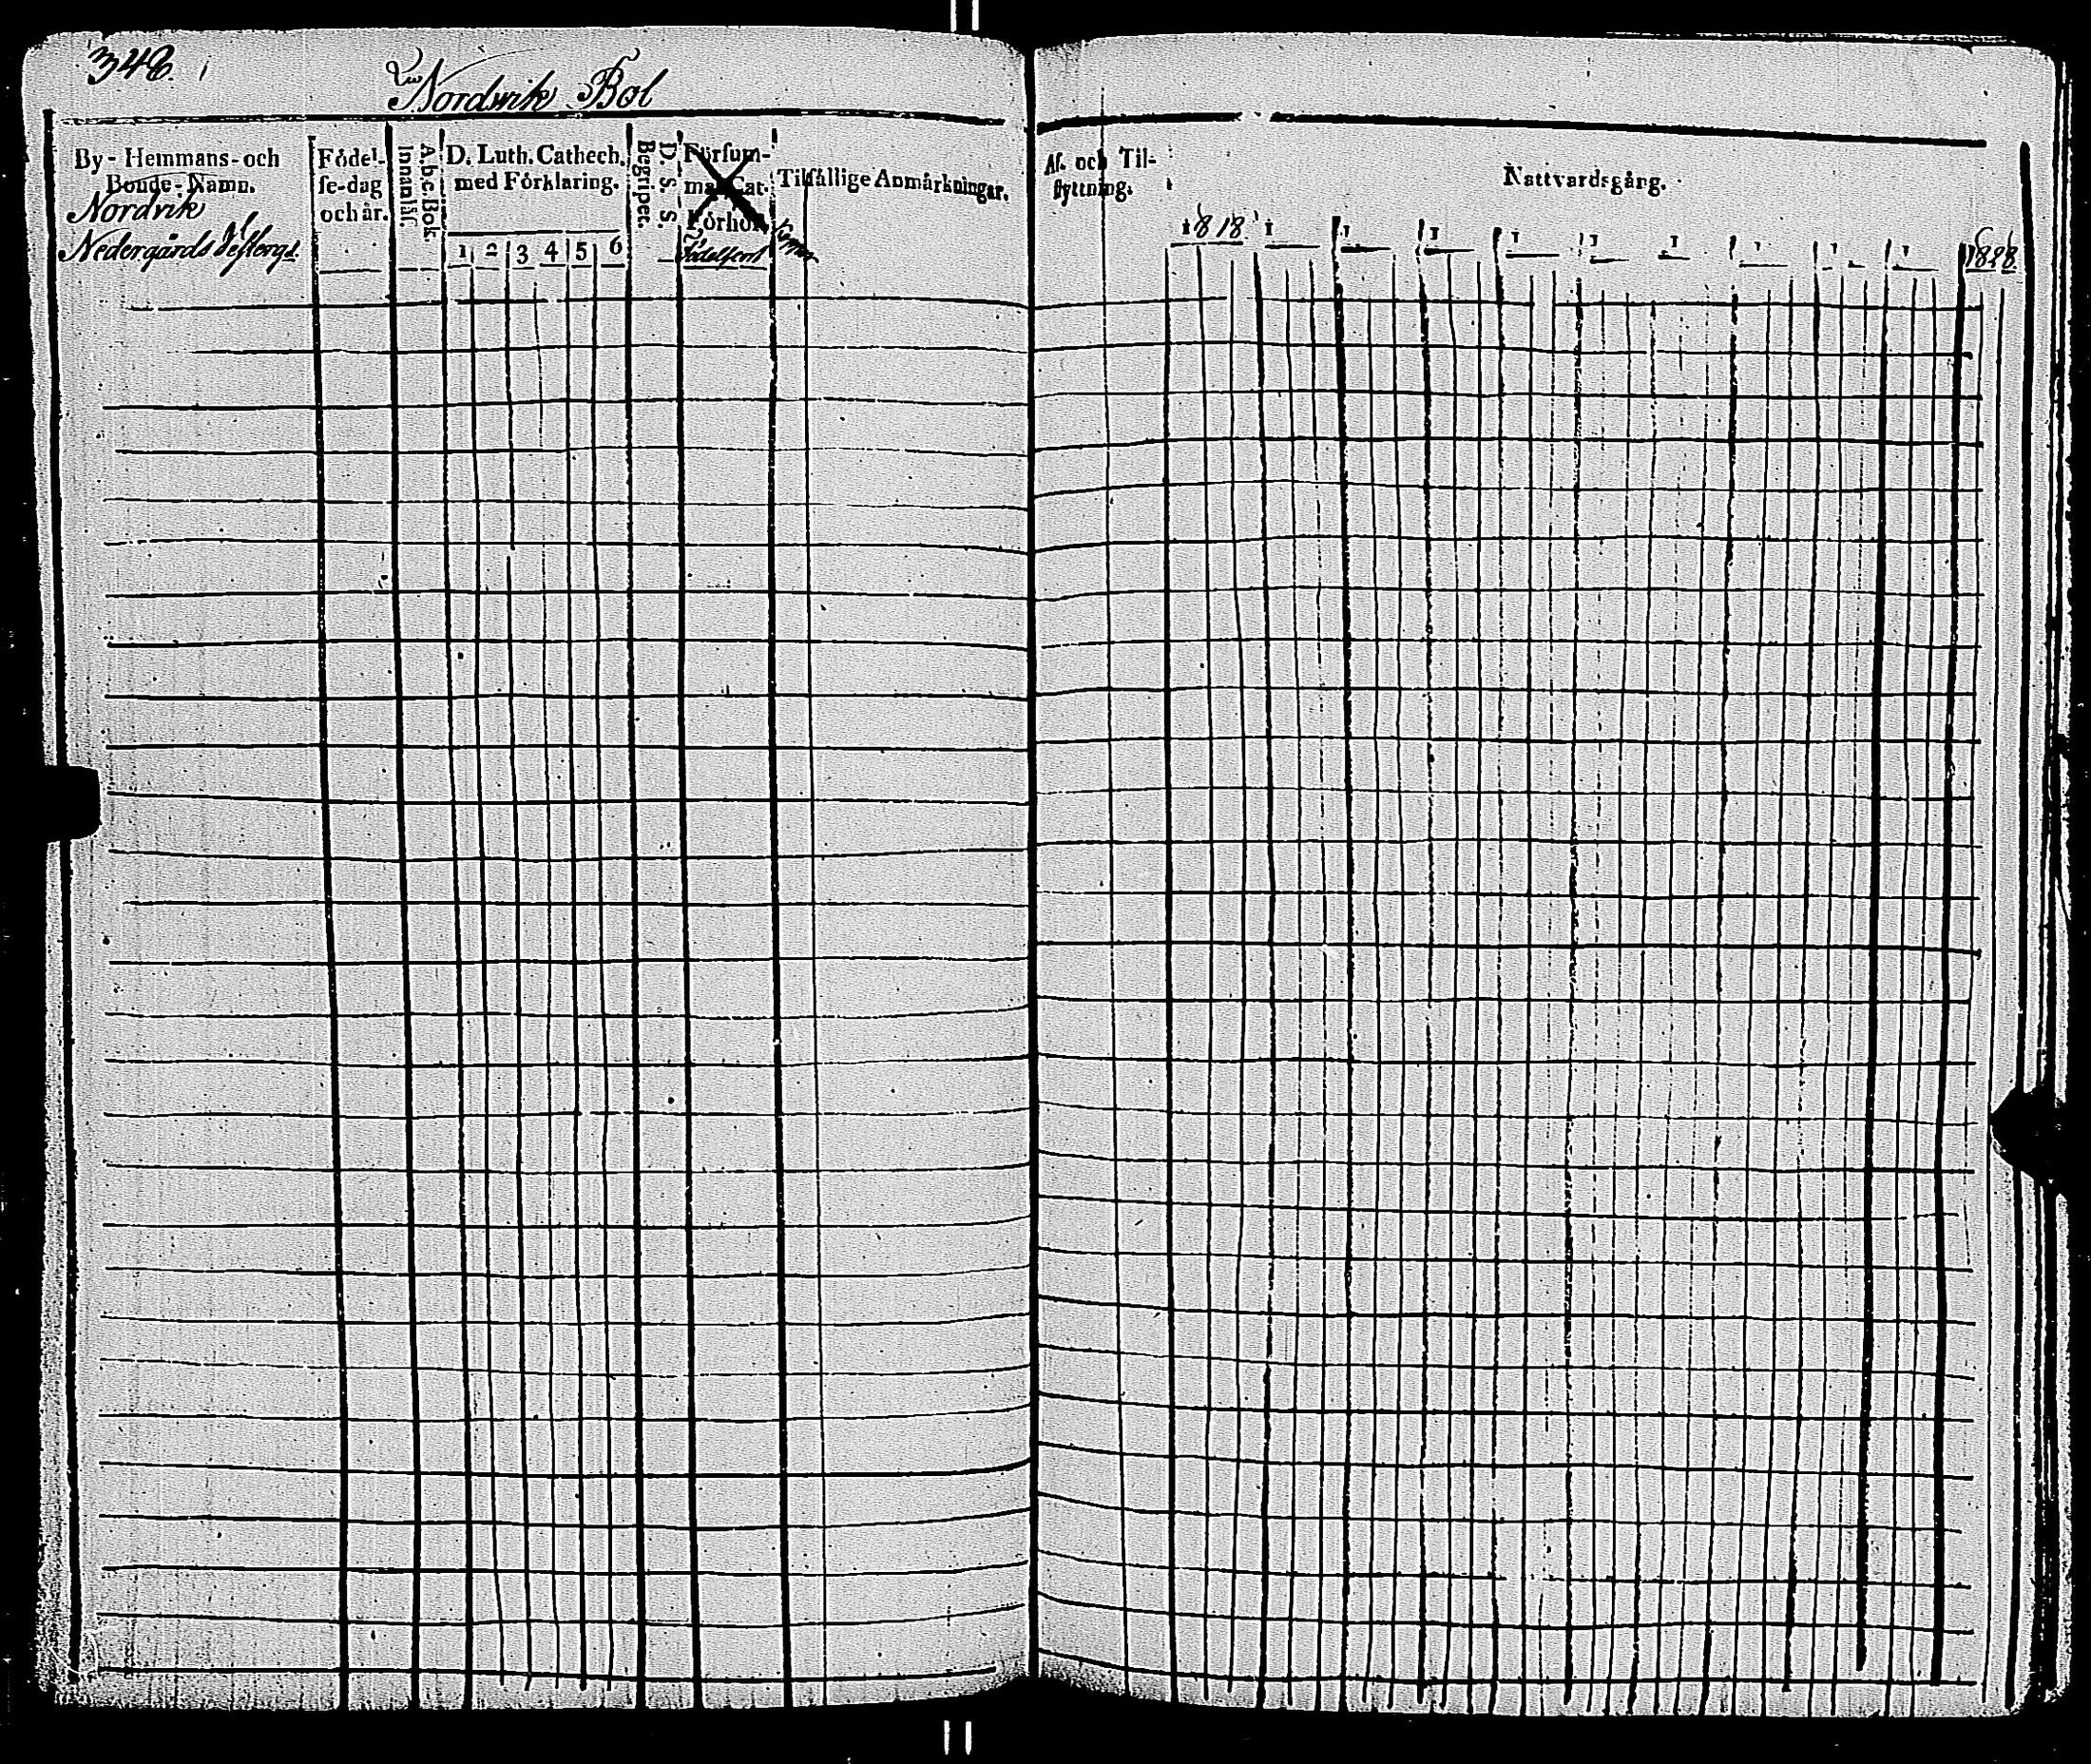 348.
Nordvik Bol
By-Hemmans-och
Bonde-Namn.
Nordvik
Nedergårds
Födel-
se-dag
och år.
A. b. c. Bok.
Innanläs.
D. Luth. Cathech.
med Förklaring.
1 2 3 4 5 6
D. S. S.
Begripet.
Försum-
mat Cat.
Förhör.
Födelseort
Tilfällige Anmärkningar.
Af- och Til-
flyttning.
Nattvardsgång.
1818. 1 1 1 1 1 1 1 1 1 1828